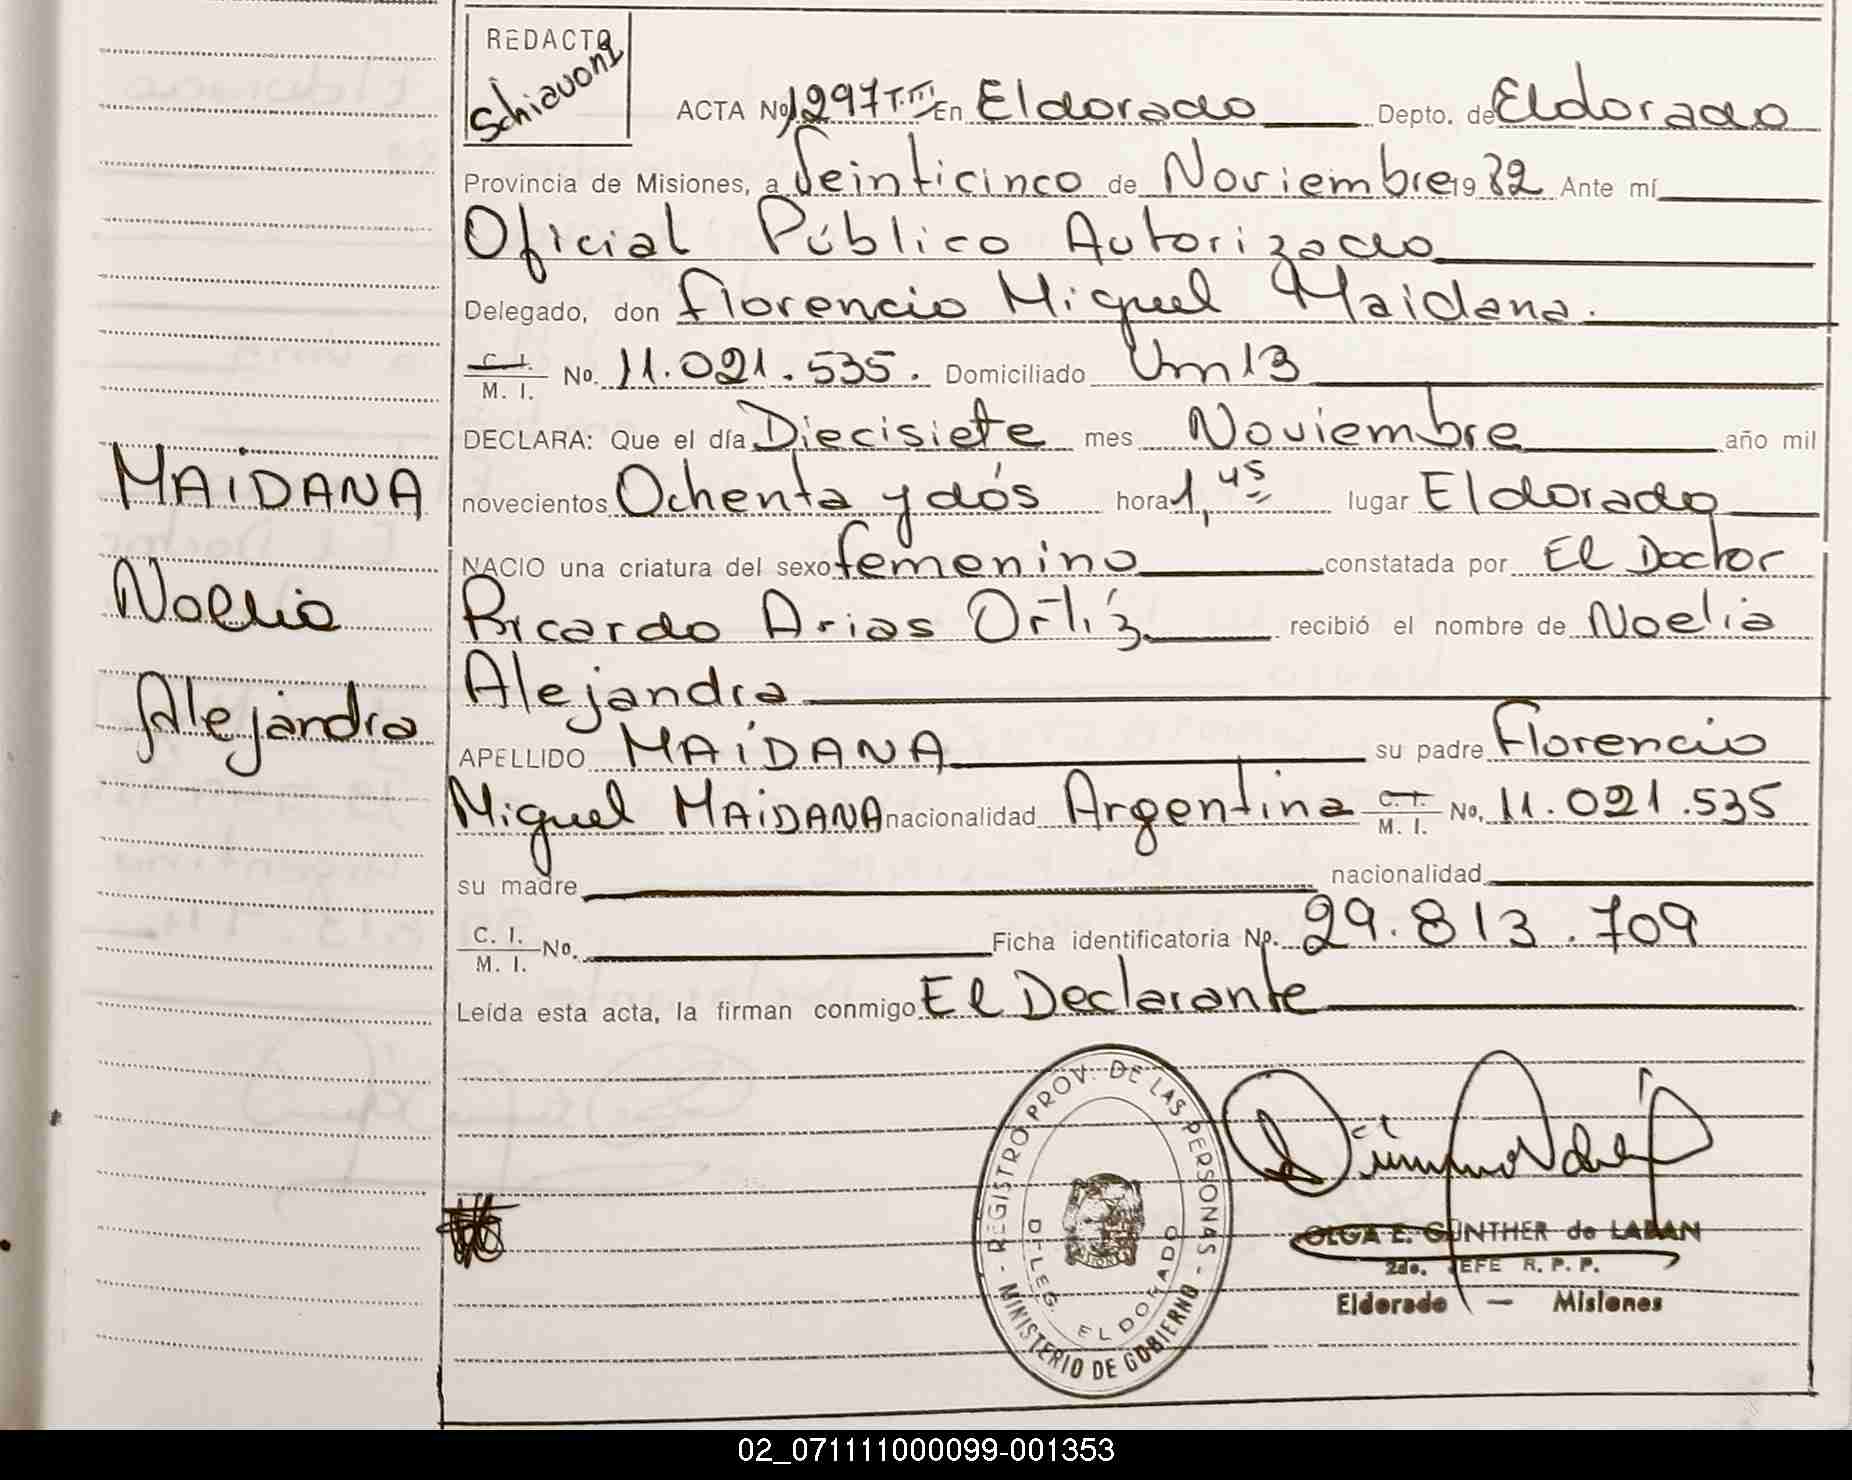 REDACTO
Schiavoni
ACTA No. 1297 T.III En Eldorado Depto. de Eldorado
Provincia de Misiones, a Veinticinco de Noviembre 1982 Ante mí
Oficial Público Autorizado
Delegado, don Florencio Miguel Maidana.
C. I. M. I. No. 11.021.535. Domiciliado Km 13
DECLARA: Que el día Diecisiete mes Noviembre año mil
novecientos Ochenta y dós hora 1,45 lugar Eldorado
NACIO una criatura del sexo femenino constatada por El Doctor
Ricardo Arias Ortíz recibió el nombre de Noelia
Alejandra
APELLIDO MAIDANA su padre Florencio
Miguel MAIDANA nacionalidad Argentina C. I. M. I. No. 11.021.535
su madre nacionalidad
C. I. M. I. No. Ficha identificatoria No. 29.813.709
Leída esta acta, la firman conmigo El Declarante
MAIDANA
Noelia
Alejandra
REGISTRO PROV. DE LAS PERSONAS - MINISTERIO DE GOBIERNO -
DELEG. ELDORADO
OLGA E. GÜNTHER de LABAN
2do. JEFE R. P. P.
Eldorado — Misiones
02_071111000099-001353